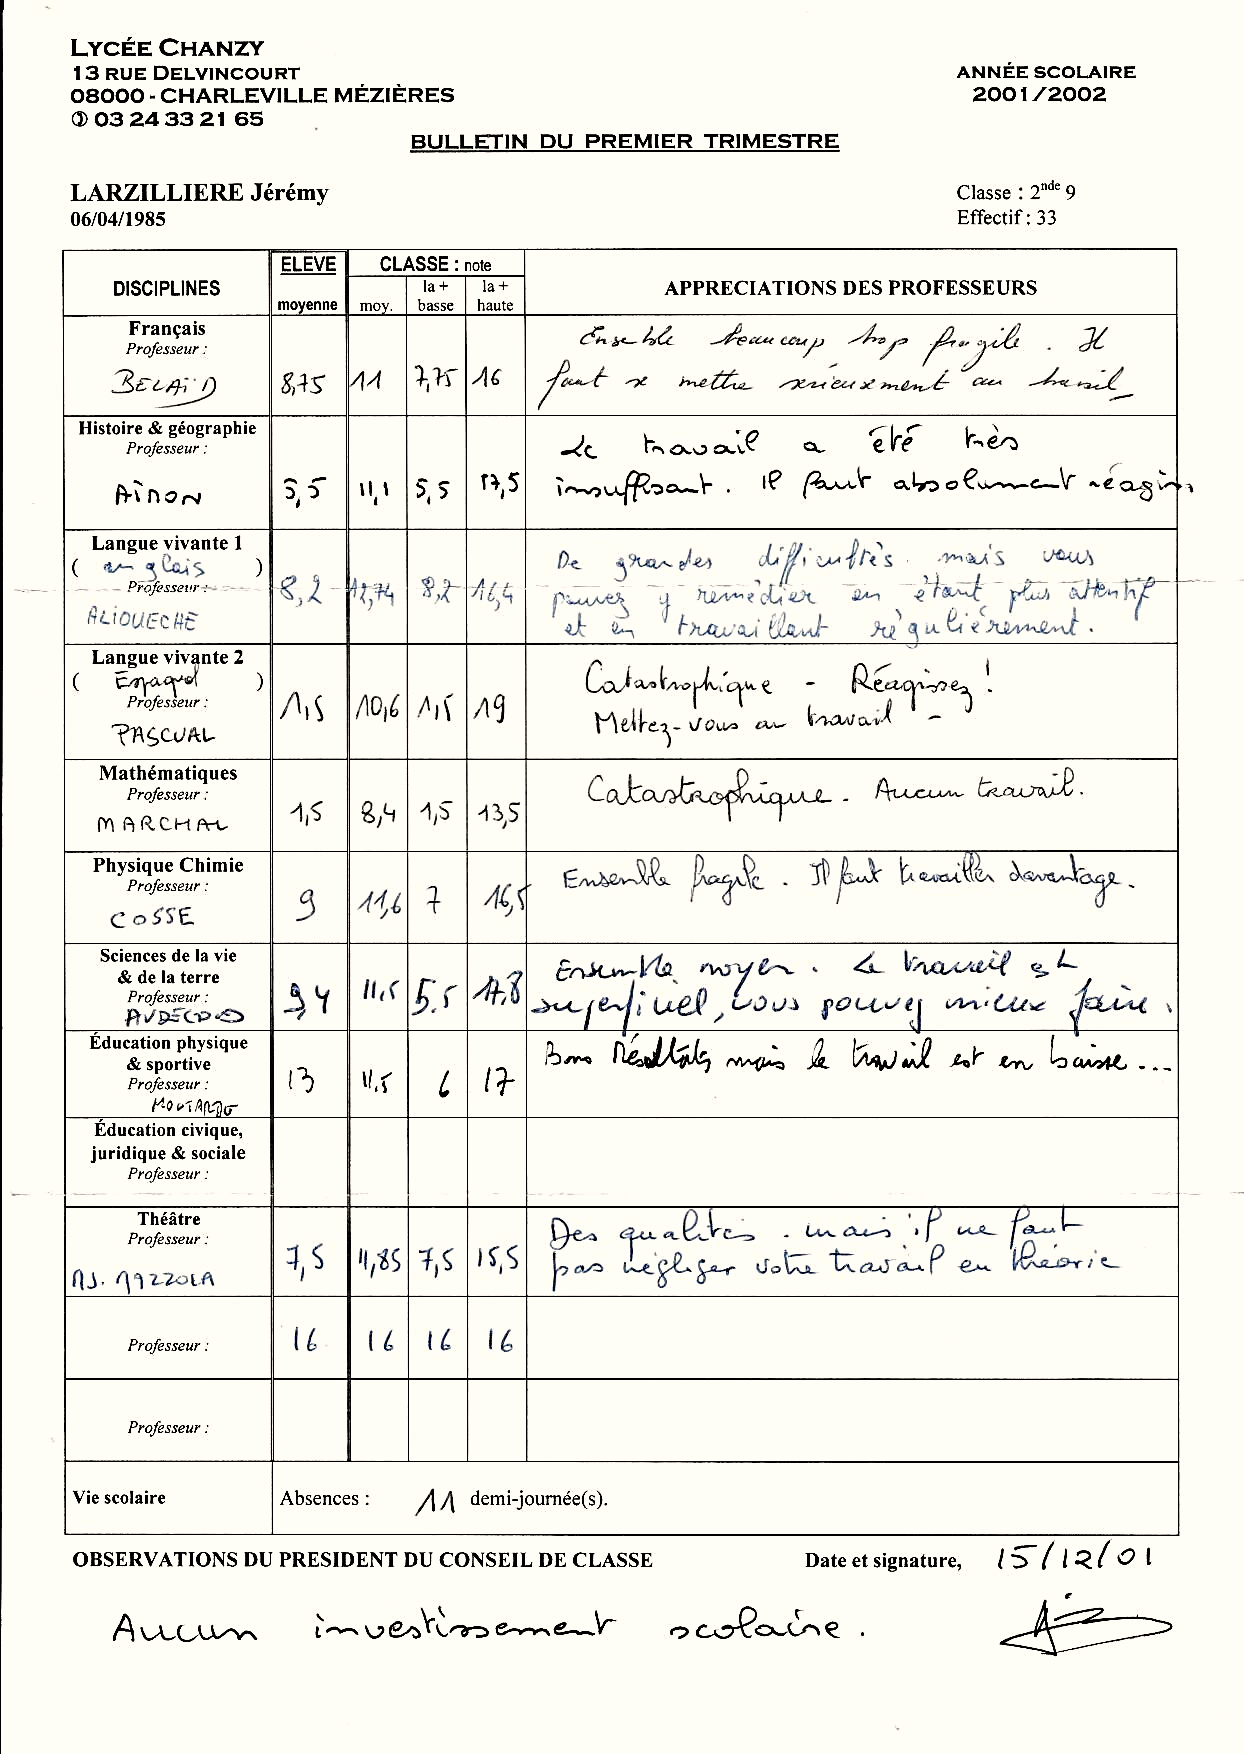 LYCÉE CHANZY
13 RUE DELVINCOURT
08000 - CHARLEVILLE MÉZIÈRES
03 24 33 21 65
ANNÉE SCOLAIRE
2001/2002
BULLETIN DU PREMIER TRIMESTRE
LARZILLIERE Jérémy
06/04/1985
Classe : 2nde 9
Effectif : 33
DISCIPLINES
ELEVE
moyenne
CLASSE : note
moy.
la + basse
la + haute
APPRECIATIONS DES PROFESSEURS
Français
Professeur :
BELAÏD
8,75 11 7,75 16
Ensemble beaucoup trop fragile. Il
faut se mettre sérieusement au travail
Histoire & géographie
Professeur :
AINON
5,5 11,1 5,5 17,5
Le travail a été très
insuffisant. Il faut absolument réagir.
Langue vivante 1
( anglais )
Professeur :
ALIOUECHE
8,2 12,74 8,2 16,4
De grandes difficultés mais vous
pouvez y remédier en étant plus attentif
et en travaillant régulièrement.
Langue vivante 2
( Espagnol )
Professeur :
PASCUAL
1,5 10,6 1,5 19
Catastrophique - Réagissez !
Mettez-vous au travail -
Mathématiques
Professeur :
MARCHAL
1,5 8,4 1,5 13,5
Catastrophique. Aucun travail.
Physique Chimie
Professeur :
COSSE
9 11,6 7 16,5
Ensemble fragile. Il faut travailler davantage.
Sciences de la vie
& de la terre
Professeur :
9,4 11,5 5,5 17,8
Ensemble moyen. Le travail est
superficiel, vous pouvez mieux faire.
Éducation physique
& sportive
Professeur :
13 11,5 6 17
Bons résultats mais le travail est en baisse...
Éducation civique,
juridique & sociale
Professeur :
Théâtre
Professeur :
MAZZOLA
7,5 11,85 7,5 15,5
Des qualités. mais il ne faut
pas négliger votre travail en théorie
Professeur :
16 16 16 16
Professeur :
Vie scolaire
Absences : 11 demi-journée(s).
OBSERVATIONS DU PRESIDENT DU CONSEIL DE CLASSE
Date et signature, 15/12/01
Aucun investissement scolaire.